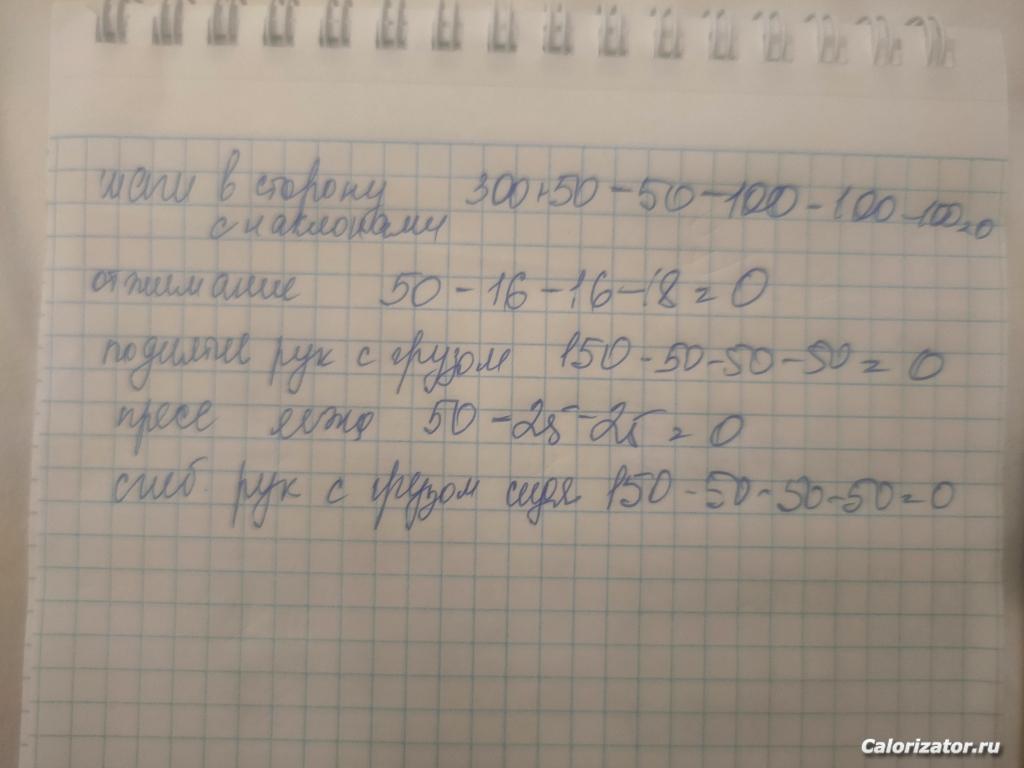 шаги в сторону 300+50-50-100-100-100=0
с наклонами
отжимание 50-16-16-18=0
поднятие рук с грузом 150-50-50-50=0
пресс лежа 50-25-25=0
сгиб. рук с грузом сидя 150-50-50-50=0
Calorizator.ru